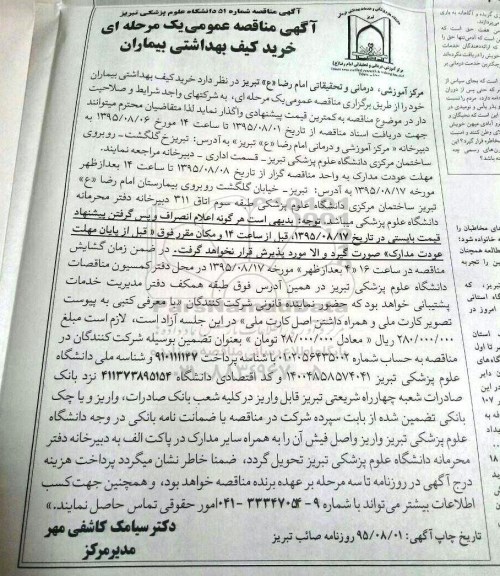 آگهی مناقصه شماره ۵۱ دانشگاه علوم پزشکی تبریز
آگهی مناقصه عمومی یک مرحله ای
خرید کیف بهداشتی بیماران
مرکز آموزشی، درمانی و تحقیقاتی امام رضا «ع» تبریز در نظر دارد خرید کیف بهداشتی بیماران
خود را از طریق برگزاری مناقصه عمومی یک مرحله ای، به شرکتهای واجد شرایط و صلاحیت
دار در موضوع مناقصه به کمترین قیمت پیشنهادی واگذار نماید لذا متقاضیان محترم میتوانند
جهت دریافت اسناد مناقصه از تاریخ ۱۳۹۵/۰۸/۰۱ تا ساعت ۱۴ مورخ ۱۳۹۵/۰۸/۰۶ به
دبیرخانه « مرکز آموزشی و درمانی امام رضا «ع» تبریز» به آدرس: تبریز خ گلگشت ـ روبروی
ساختمان مرکزی دانشگاه علوم پزشکی تبریز ـ قسمت اداری ـ دبیرخانه مراجعه نمایند.
مهلت عودت مدارک به واحد مناقصه گزار از تاریخ ۱۳۹۵/۰۸/۰۸ تا ساعت ۱۴ بعدازظهر
مورخه ۱۳۹۵/۰۸/۱۷ به آدرس: تبریز ـ خیابان گلگشت روبروی بیمارستان امام رضا «ع»
تبریز ساختمان مرکزی دانشگاه علوم پزشکی طبقه سوم اتاق ۳۱۱ دبیرخانه دفتر محرمانه
دانشگاه علوم پزشکی میباشد. توجه: بدیهی است هرگونه اعلام انصراف و پس گرفتن پیشنهاد
قیمت بایستی در تاریخ ۱۳۹۵/۰۸/۱۷، قبل از ساعت ۱۴ و مکان مقرر فوق « قبل از پایان مهلت
عودت مدارک» صورت گیرد و الا مورد پذیرش قرار نخواهد گرفت. در ضمن زمان گشایش
مناقصه در ساعت ۱۶ «۴ بعدازظهر» مورخه ۱۳۹۵/۰۸/۱۷ در محل دفتر کمسیون مناقصات
دانشگاه علوم پزشکی تبریز در همین آدرس فوق طبقه همکف دفتر مدیریت خدمات
پشتیبانی خواهد بود که حضور نماینده قانونی شرکت کنندگان «با معرفی کتبی به پیوست
تصویر کارت ملی و همراه داشتن اصل کارت ملی» در این جلسه آزاد است، لازم است مبلغ
۲۸۰/۰۰۰/۰۰۰ ریال « معادل ۲۸/۰۰۰/۰۰۰ تومان » بعنوان تضمین بوسیله شرکت کنندگان در
مناقصه به حساب شماره ۰۱۰۲۰۵۶۴۳۵۰۰۲ با شناسه پرداخت ۹۱۰۱۱۱۱۲۷ و شناسه ملی دانشگاه
علوم پزشکی تبریز ۱۴۰۰۴۸۵۸۵۷۴۰۴۱ و کد اقتصادی دانشگاه ۴۱۱۳۷۳۸۹۵۱۵۴ نزد بانک
صادرات شعبه چهارراه شریعتی تبریز قابل واریز در کلیه شعب بانک صادرات، واریز و یا چک
بانکی تضمین شده از بابت سپرده شرکت در مناقصه یا ضمانت نامه بانکی در وجه دانشگاه
علوم پزشکی تبریز واریز واصل فیش آن را به همراه سایر مدارک در پاکت الف به دبیرخانه دفتر
محرمانه دانشگاه علوم پزشکی تبریز تحویل گردد، ضمنا خاطر نشان میگردد پرداخت هزینه
درج آگهی در روزنامه تا سه مرحله بر عهده برنده مناقصه خواهد بود، و همچنین جهت کسب
اطلاعات بیشتر می تواند با شماره ۹ - ۳۳۳۴۷۰۵۴ -۰۴۱ امور حقوقی تماس حاصل نمایند.»
دکتر سیامک کاشفی مهر
مدیر مرکز
تاریخ چاپ آگهی: ۹۵/۰۸/۰۱ روزنامه صائب تبریز